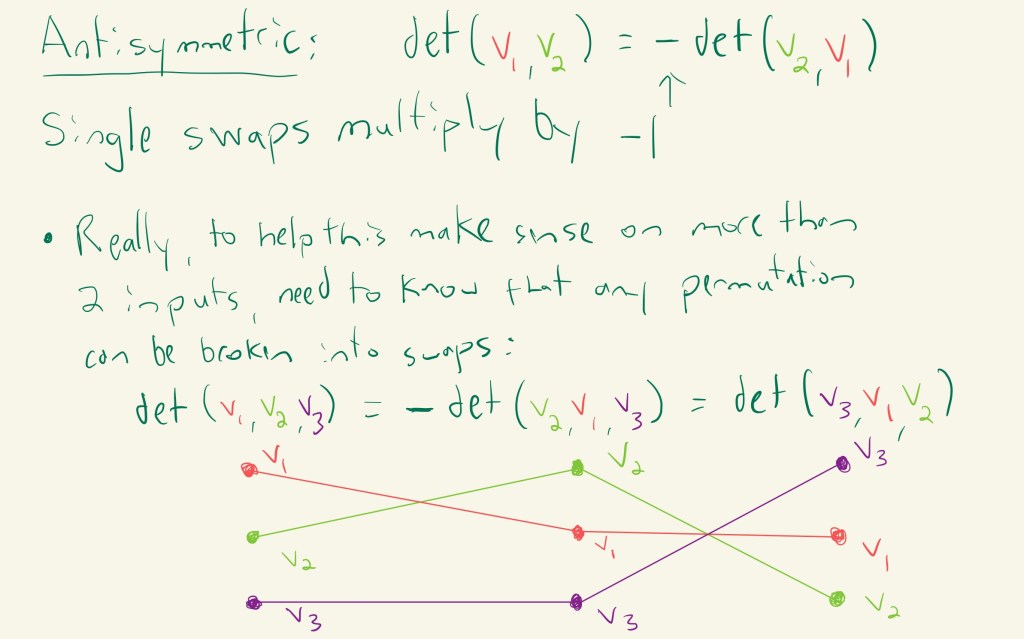 Antisymmetric: det(v₁, v₂) = - det(v₂, v₁)
↑
Single swaps multiply by -1
• Really, to help this make sense on more than
2 inputs, need to know that any permutation
can be broken into swaps:
det(v₁, v₂, v₃) = - det(v₂, v₁, v₃) = det(v₃, v₁, v₂)
v₁ v₂ v₃
v₂ v₁ v₁
v₃ v₃ v₂